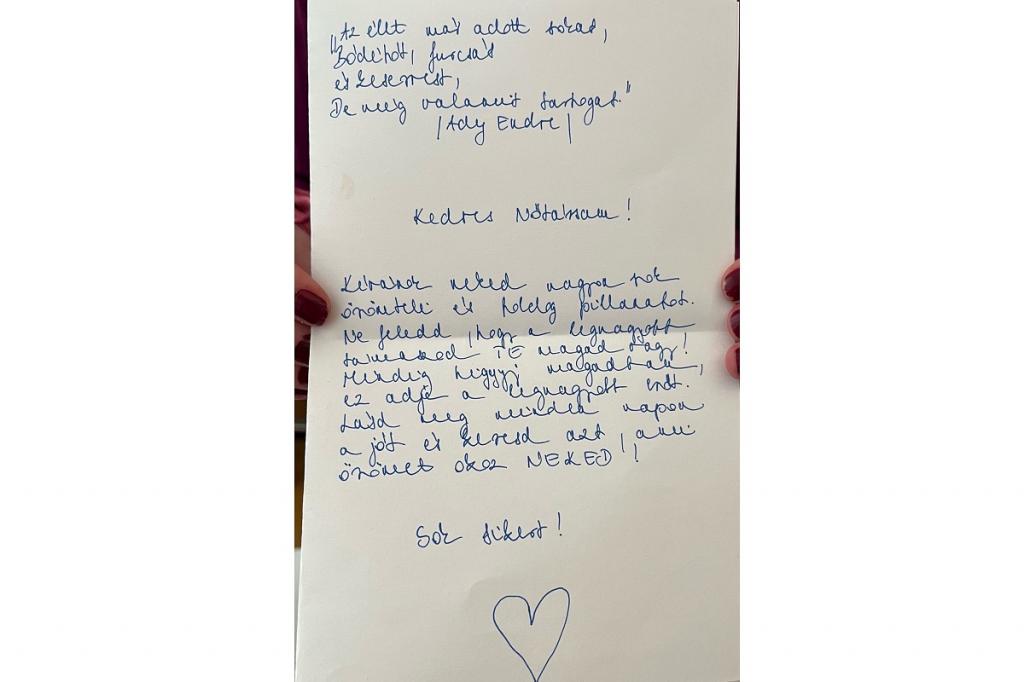 "Az élet már adott sokat,
Bódítót, furcsát
és keserveset,
De még valamit tartogat."
/Ady Endre/
Kedves Nőtársam!
Kívánok neked nagyon sok
örömteli és boldog pillanatot.
Ne feledd, hogy a legnagyobb
támaszod TE magad vagy!
Mindig higgyj magadban,
ez adja a legnagyobb erőt.
Lásd meg minden napon
a jót és keresd azt, ami
örömet okoz NEKED!
Sok sikert!